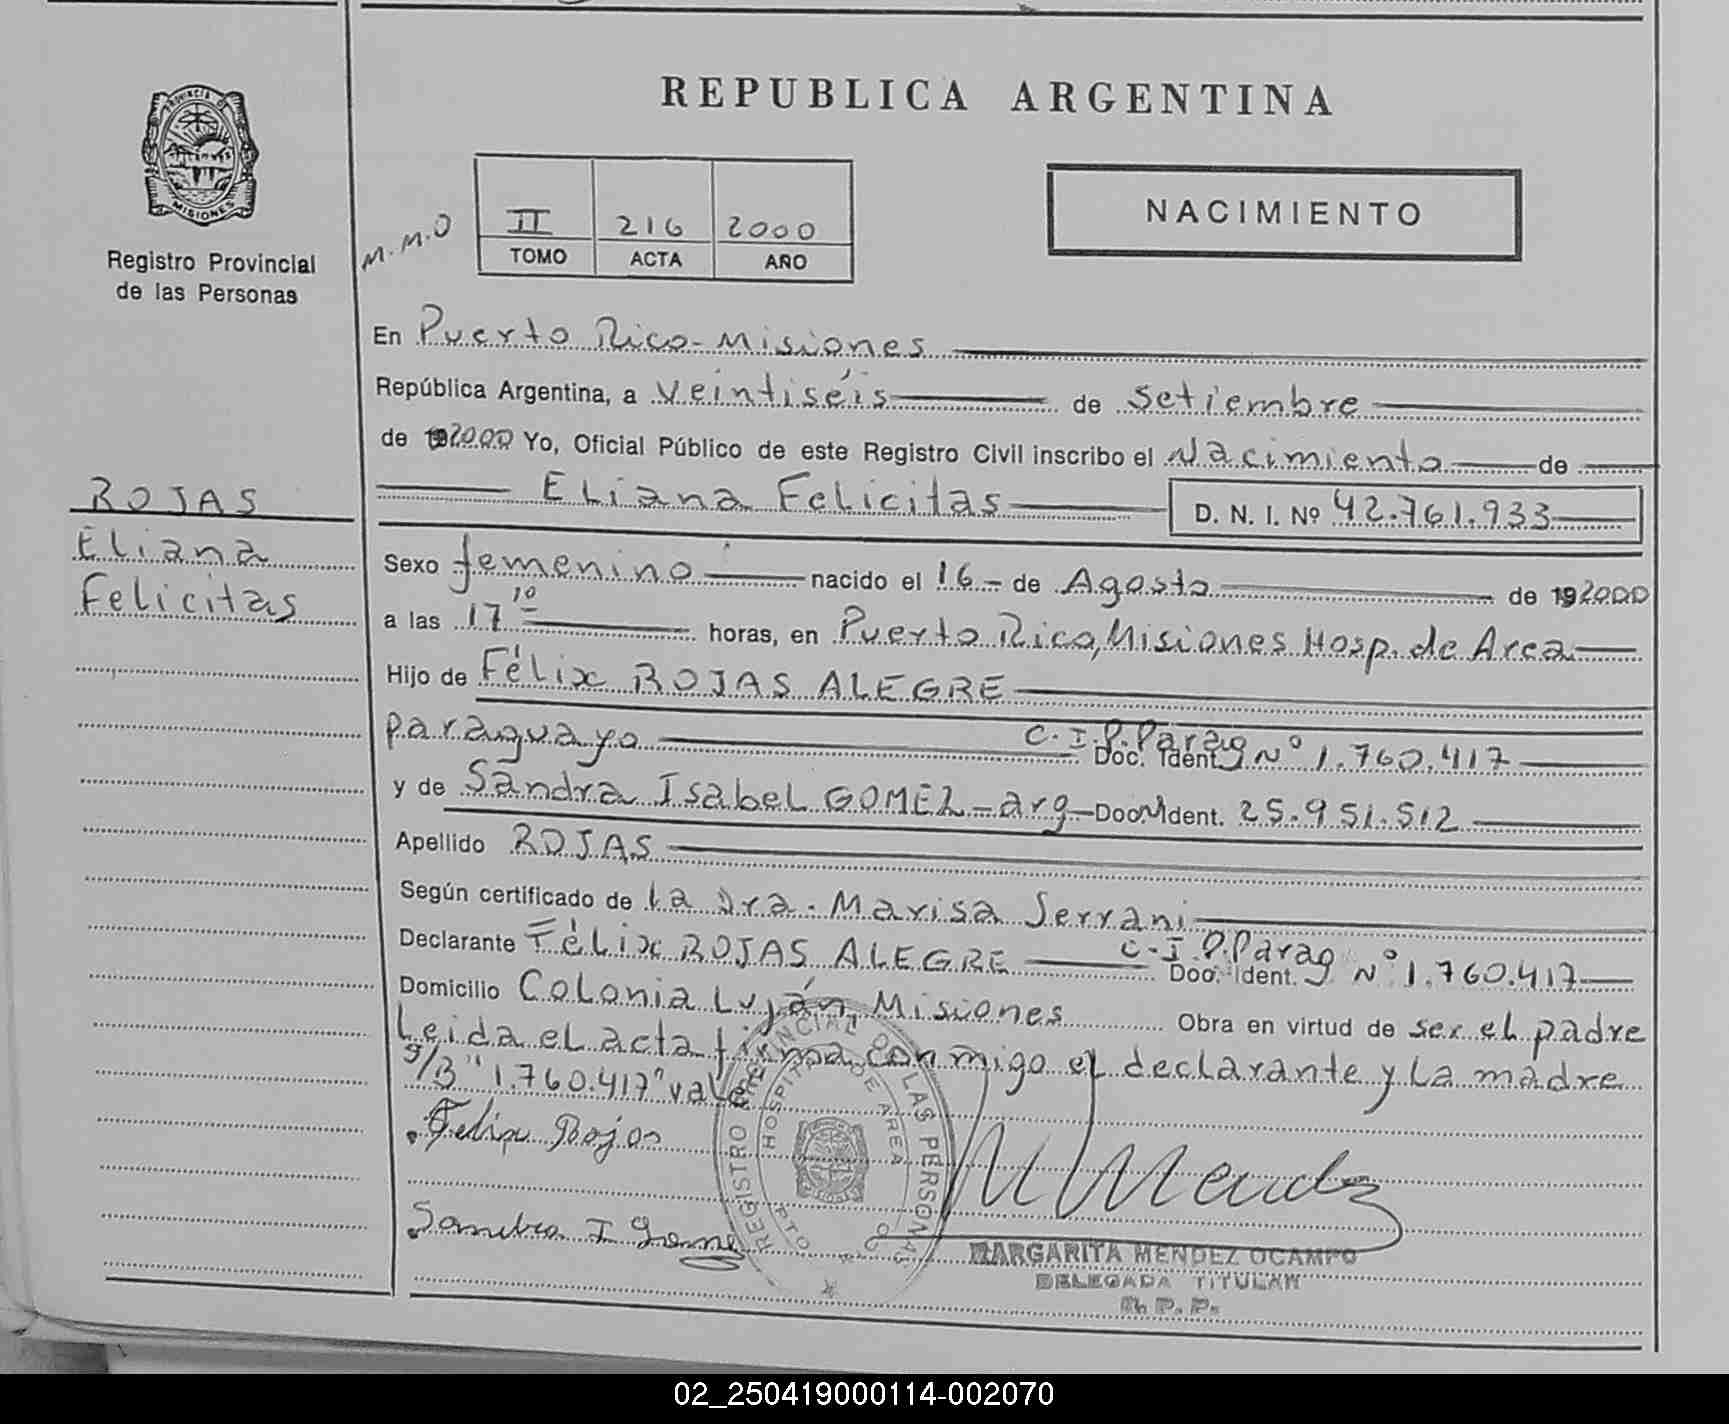 REPUBLICA ARGENTINA
PROVINCIA D
MISIONES
Registro Provincial
de las Personas
M.M.O
II 216 2000
TOMO ACTA AÑO
NACIMIENTO
En Puerto Rico-Misiones
República Argentina, a veintiséis de setiembre
de 192000 Yo, Oficial Público de este Registro Civil inscribo el Nacimiento de
Eliana Felicitas D. N. I. Nº 42.761.933
ROJAS
Eliana
Felicitas
Sexo femenino nacido el 16 de Agosto de 192000
a las 17 10 horas, en Puerto Rico, Misiones Hosp. de Area
Hijo de Félix ROJAS ALEGRE
paraguayo C.I.P.Parag Doc. Ident. Nº 1.760.417
y de Sandra Isabel GOMEZ-arg-Doc. Ident. 25.951.512
Apellido ROJAS
Según certificado de la Dra. Marisa Serrani
Declarante Félix ROJAS ALEGRE C.I.P.Parag Doc. Ident. Nº 1.760.417
Domicilio Colonia Luján, Misiones Obra en virtud de ser el padre
Leida el acta firma conmigo el declarante y la madre
s/B "1.760.417" vale
Felix Rojas
Sandra I Gome
REGISTRO PROVINCIAL DE LAS PERSONAS
HOSPITAL DE AREA
PTO
M Mendez
MARGARITA MENDEZ OCAMPO
DELEGADA TITULAR
R. P. P.
02_250419000114-002070